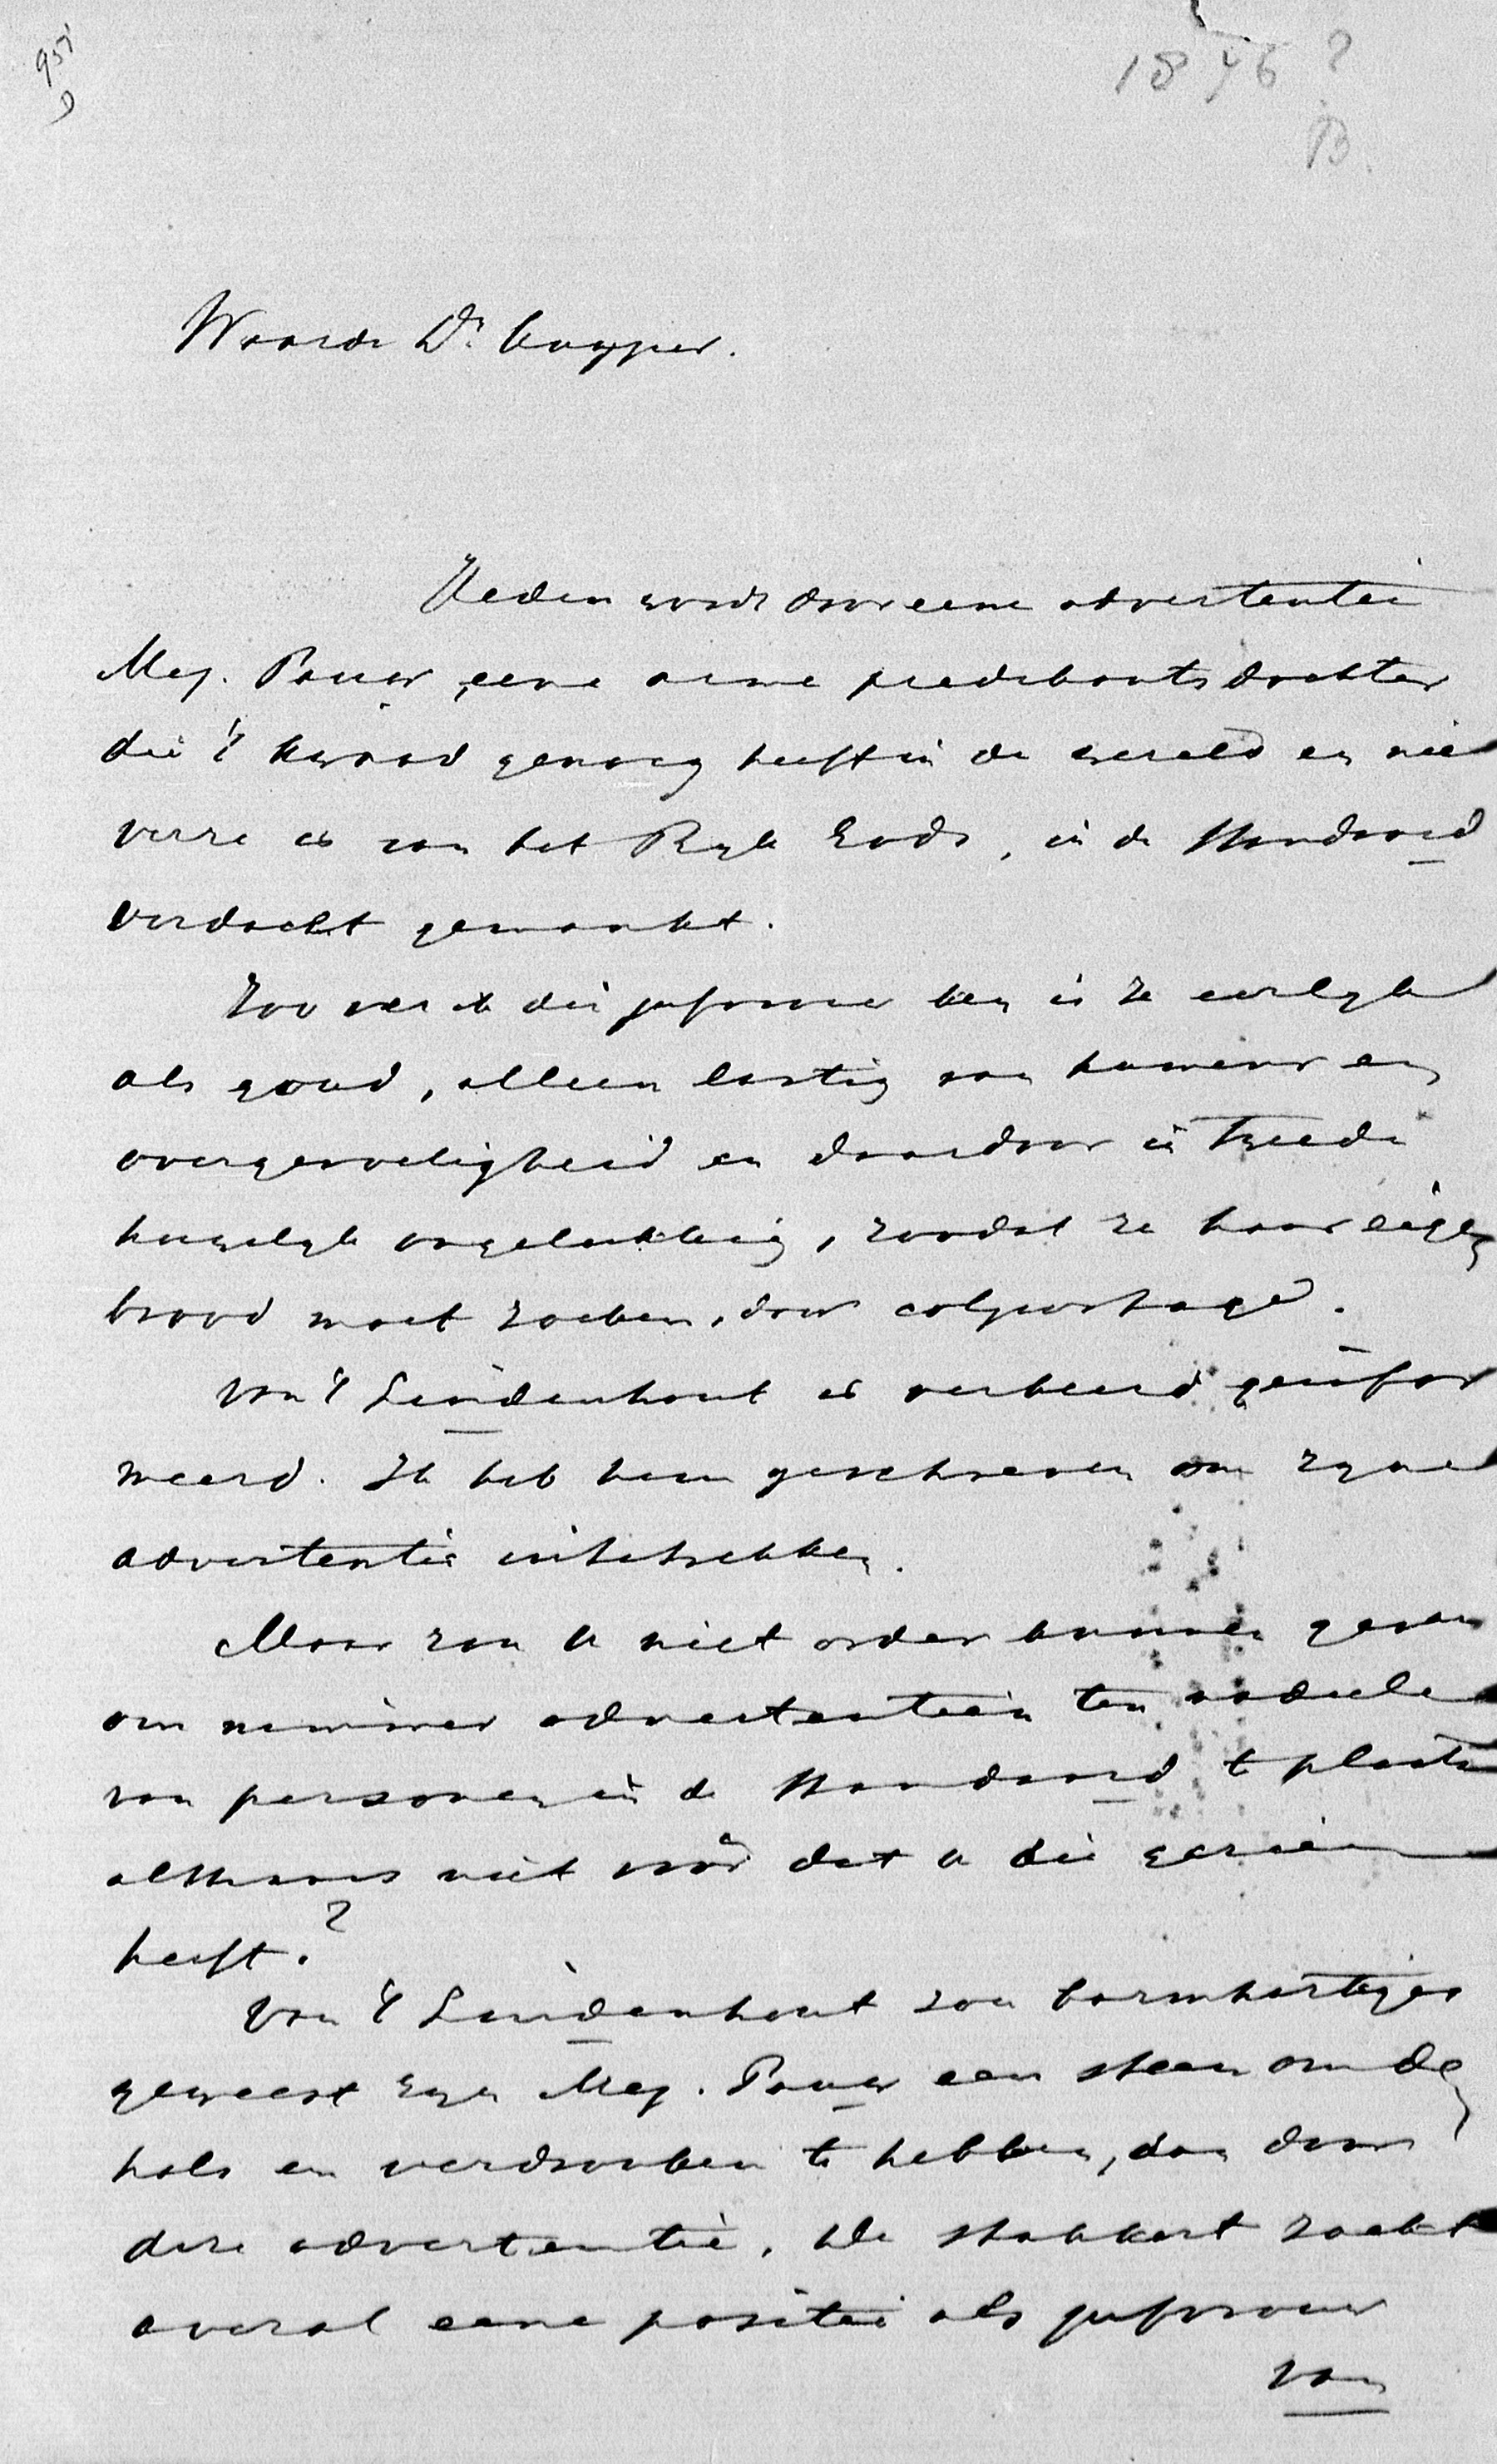 951
1876?
B.
Waarde Dr. Kuyper.
Heden wordt door eene advertentie
Mej. Pauw, eene arme predikantsdochter
die 't kwaad genoeg heeft in de wereld en niet
verre is van het Rijk Gods, in de Standaard
verdacht gemaakt.
Zoover ik die juffrouw ken is ze eerlijk
als goud, alleen lastig van humeur en
overgevoeligheid en daardoor in tweede
huwelijk ongelukkig, zoodat ze haar eigen
brood moet zoeken, door colportage.
Van 't Lindenhout is verkeerd geinfor
meerd. Ik heb hem geschreven om zijne
advertentie intetrekken.
Maar zou U niet order kunnen geven
om nimmer advertentiën ten nadeele
van personen in de Standaard te plaatsen
althans niet vóór dat U die gezien
heeft?
Van 't Lindenhout zou barmhartiger
geweest zijn Mej. Pauw een steen om de
hals en verdronken te hebben, dan door
deze advertentie. De stakkert zoekt
overal eene positie als juffrouw
van